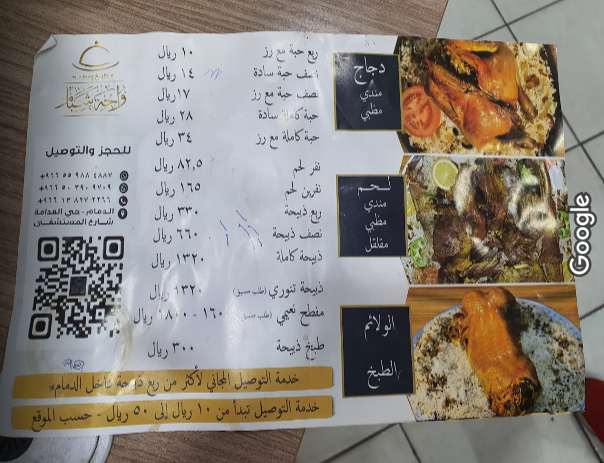 دجاج
مندي
مظبي
ربع حبة مع رز ١٠ ريال
نصف حبة سادة ١٤ ريال
نصف حبة مع رز ١٧ ريال
حبة كاملة سادة ٢٨ ريال
حبة كاملة مع رز ٣٤ ريال
لحم
مندي
مظبي
مقلقل
نفر لحم ٨٢,٥ ريال
نفرين لحم ١٦٥ ريال
ربع ذبيحة ٣٣٠ ريال
نصف ذبيحة ٦٦٠ ريال
ذبيحة كاملة ١٣٢٠ ريال
الولائم
الطبخ
ذبيحة تنوري (طلب مسبق) ١٣٢٠ ريال
مفطح نعيمي (طلب مسبق) ١٦٠٠ - ١٨٠٠ ريال
طبخ ذبيحة ٣٠٠ ريال
خدمة التوصيل المجاني لأكثر من ربع ذبيحة داخل الدمام
خدمة التوصيل تبدأ من ١٠ ريال إلى ٥٠ ريال - حسب الموقع
للحجز والتوصيل
+٩٦٦ ٥٥ ٩٨٨ ٤٨٨٧
+٩٦٦ ٥٠ ٣٩٠ ٩٧٠٩
+٩٦٦ ١٣ ٨٢٧ ٢٢٦٦
الدمام - حي العدامة
شارع المستشفى
Google